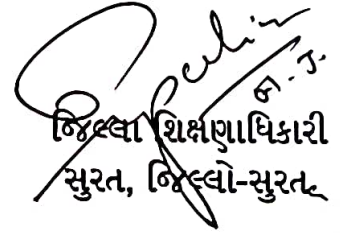 ન. જ.
જિલ્લા શિક્ષણાધિકારી
સુરત, જિલ્લો-સુરત